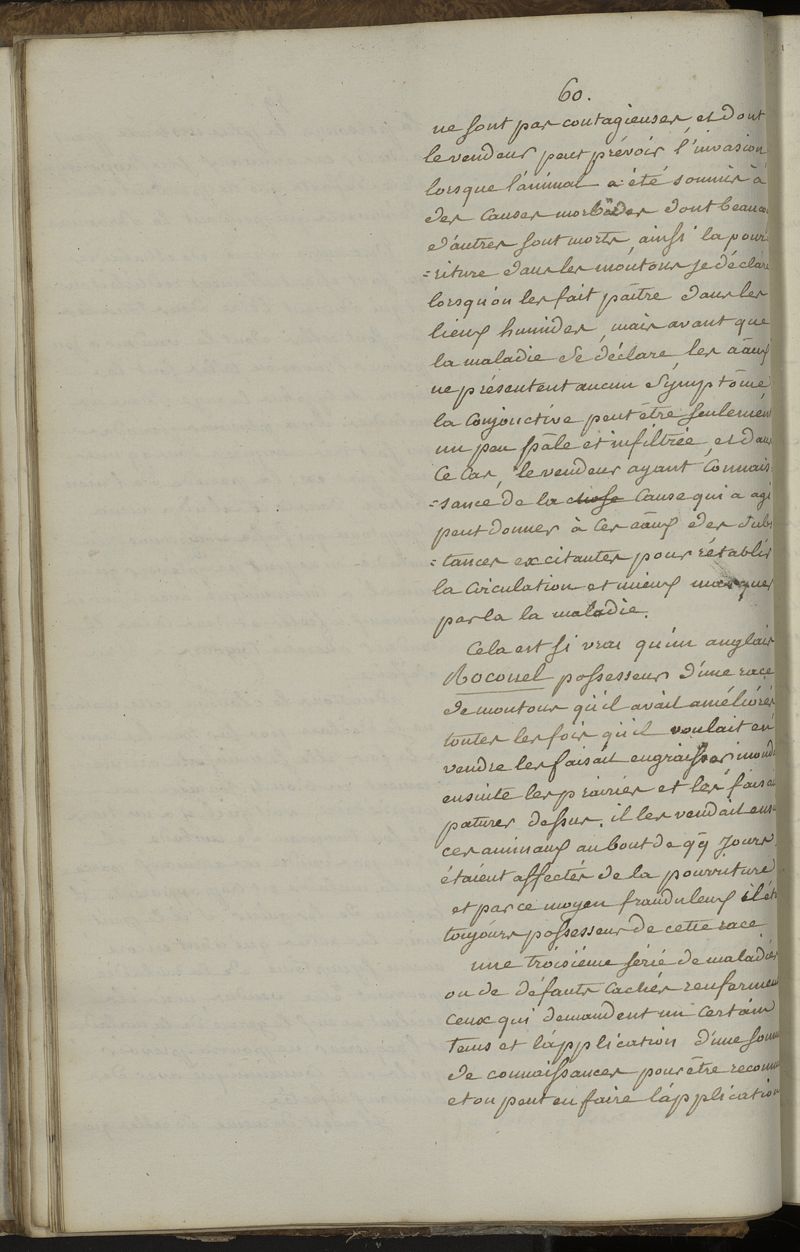 60.
ne sont pas contagieuses, et dont
le vendeur peut prévoir l'invasion
lorsque l'animal a été soumis à
des causes morbides dont beaucou
d'autres sont morts, ainsi la pour
=riture dans les moutons se déclare
lorsqu'on les fait paître dans les
lieux humides, mais avant que
la maladie se déclare, les aāux
ne présentent aucun symptôme
la conjonctive peut être seulement
un peu pâle et infiltrée, et dans
ce cas, le vendeur ayant connais
=sance de la chose cause qui a agi
peut donner à ces aāux des subs
=tances excitantes pour rétablir
la circulation et mieux masquer
par la la maladie.
Cela est si vrai qu'un anglais
Boconel possesseur d'une race
de moutons qu'il avait améliorés
toutes les fois qu'il voulait en
vendre les faisait engraisser, inond
ensuite les prairies et les faisai
paturer dessus. il les vendait ensu
ces animaux au bout de qq jours
étaient affectés de la pourriture
et par ce moyen frauduleux il ét
toujours possesseur de cette race
une troisième série de maladies
ou de défauts cachés renferment
ceux qui demandent un certain
tems et l'application d'une somme
de connaissances pour être reconnu
et on peut en faire l'application